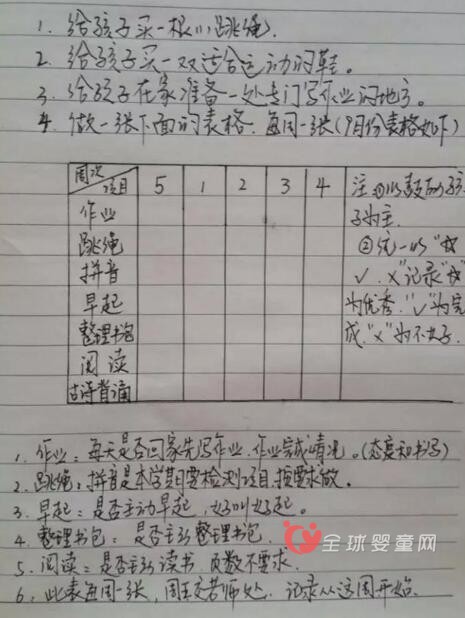 1. 给孩子买一根小跳绳.
2. 给孩子买一双适合运动的鞋。
3. 给孩子在家准备一处专门写作业的地方。
4. 做一张下面的表格. 每周一张(9月份表格如下)
周次
项目 5 1 2 3 4 注: ①以鼓励孩
作业 子为主.
跳绳 ②统一以"
拼音 √. ×"记录"
早起 为优秀."√"为完
整理书包 成."×"为不太好.
阅读
古诗背诵
1. 作业: 每天是否回家先写作业. 作业完成情况。(态度和书写)
2. 跳绳: 拼音是本学期要检测项目, 按要求做.
3. 早起: 是否主动早起, 好叫好起。
4. 整理书包: 是否主动整理书包.
5. 阅读: 是否主动读书. 页数不要求.
6. 此表每周一张, 周五交老师处. 记录从这周开始.
全球婴童网